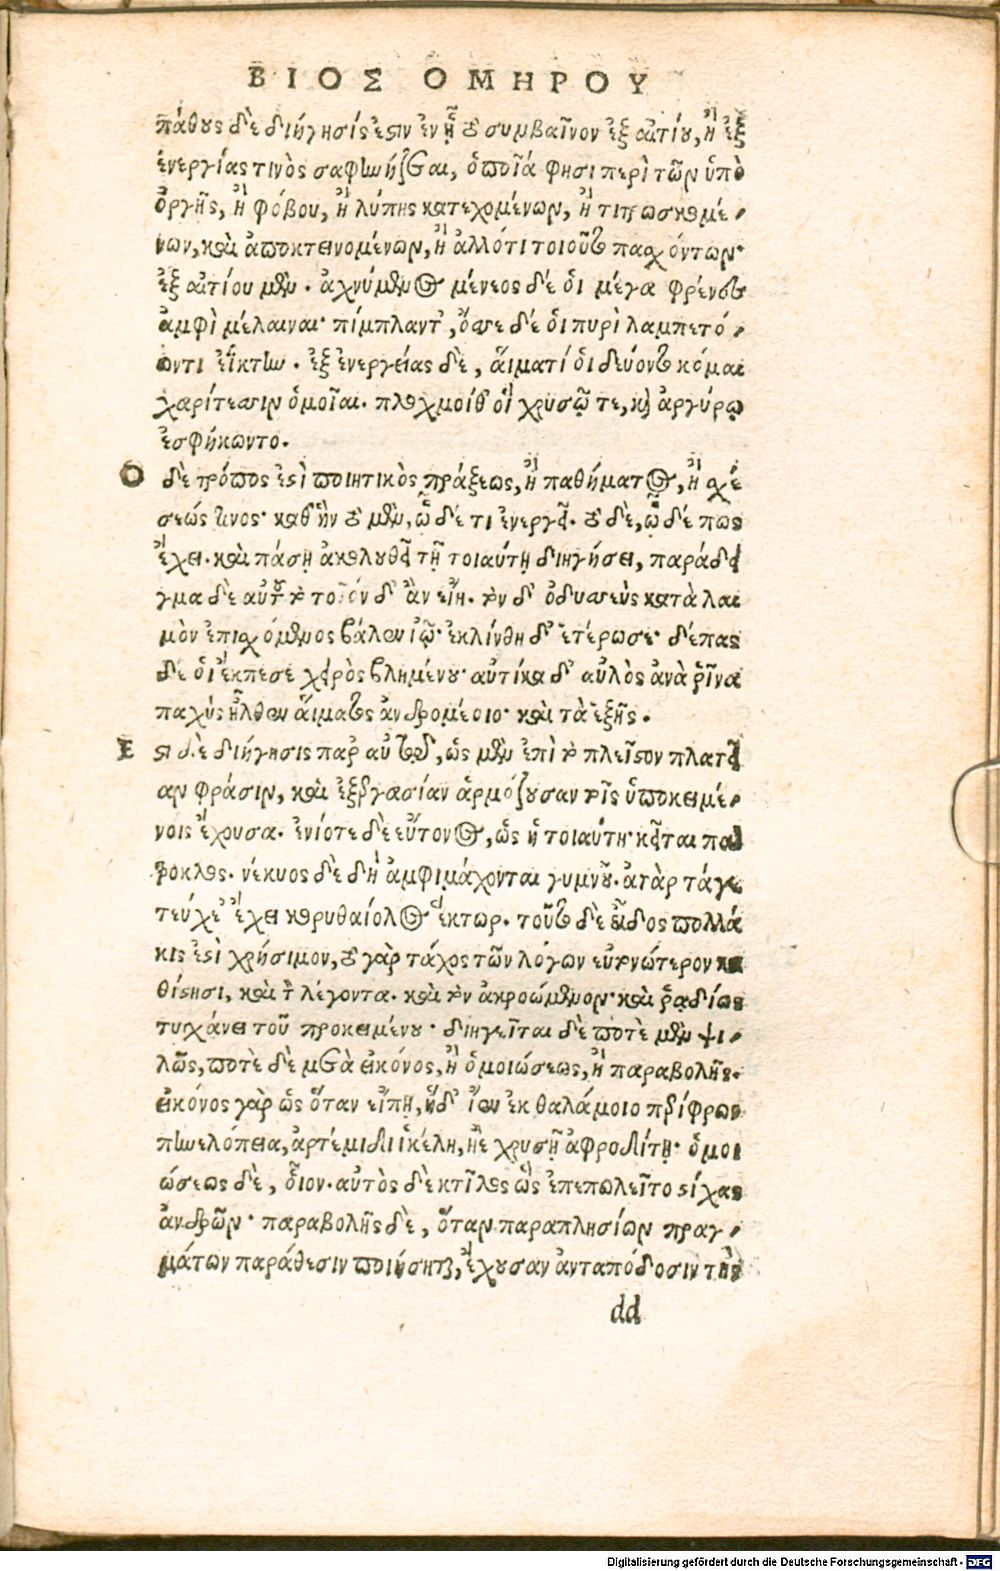 ΒΙΟΣ ΟΜΗΡΟΥ
πάθους δὲ διήγησίς ἐστιν ἐν ᾗ τὸ συμβαῖνον ἐξ αἰτίου, ἢ ἐξ
ἐνεργίας τινὸς σαφηνίζεται, ὁποῖά φησι περὶ τῶν ὑπὸ
ὀργῆς, ἢ φόβου, ἢ λύπης κατεχομένων, ἢ τιτρωσκομέ-
νων, καὶ ἀποκτεινομένων, ἢ ἀλλότι τοιοῦτο πασχόντων·
ἐξ αἰτίου μὲν. ἀχνύμενος μένεος δέ ὁι μέγα φρένες
ἀμφὶ μέλαιναι· πίμπλαντ', ὄσσε δέ ὁι πυρὶ λαμπετό-
ωντι ἐΐκτην. ἐξ ἐνεργείας δὲ, ἅιματί ὁι δεύοντο κόμαι
χαρίτεσσιν ὁμοῖαι. πλοχμοίθ' ὁὶ χρυσῷ τε, καὶ ἀργύρῳ
ἐσφήκωντο.
Ο δὲ τρόπος ἐστὶ ποιητικὸς πράξεως, ἢ παθήματος, ἢ σχέ
σεώς τινος· καθ' ἣν τὸ μὲν, ὧδέ τι ἐνεργεῖ. τὸ δὲ, ὧδέ πως
ἔχει. καὶ πάσῃ ἀκολουθεῖ τῇ τοιαύτῃ διηγήσει, παράδει
γμα δὲ αὐτοῦ τὸ τοῖον δ' ἂν εἴη. τὸν δ' ὀδυσσεὺς κατὰ λαι
μὸν ἐπισχόμενος βάλεν ἰῷ· ἐκλίνθη δ' ἑτέρωσε· δέπας
δέ ὁι ἔκπεσε χειρὸς βλημένου· αὐτίκα δ' αὐλὸς ἀνὰ ῥῖνα
παχὺς ἦλθεν ἅιματος ἀνδρομέοιο· καὶ τὰ ἑξῆς.
Ε στι δὲ διήγησις παρ' αὐτῷ, ὡς μὲν ἐπὶ τὸ πλεῖστον πλατεῖ
αν φράσιν, καὶ ἐξεργασίαν ἁρμόζουσαν τοῖς ὑποκειμέ-
νοις ἔχουσα. ἐνίοτε δὲ εὔτονος, ὡς ἡ τοιαύτη· κεῖται πα
τροκλος. νέκυος δὲ δὴ ἀμφιμάχονται γυμνοῦ. ἀτὰρ τάγε
τεύχε' ἔχει κορυθαίολος ἕκτωρ. τοῦτο δὲ εἶδος πολλά
κις ἐστὶ χρήσιμον, τὸ γὰρ τάχος τῶν λόγων εὐτονώτερον κα
θίστησι, καὶ τὸν λέγοντα. καὶ τὸν ἀκροώμενον· καὶ ῥᾳδίως
τυγχάνει τοῦ προκειμένου· διηγεῖται δὲ ποτὲ μὲν ψι-
λῶς, ποτὲ δὲ μετὰ εἰκόνος, ἢ ὁμοιώσεως, ἢ παραβολῆς.
εἰκόνος γὰρ ὡς ὅταν εἴπῃ, ἥδ' ἴεν ἐκ θαλάμοιο περίφρων
πηνελόπεια, ἀρτέμιδι ἰκέλη, ἠὲ χρυσῇ ἀφροδίτῃ· ὁμοι
ώσεως δὲ, ὅιον. αὐτὸς δὲ κτῖλος ὣς ἐπεπωλεῖτο στίχας
ἀνδρῶν· παραβολῆς δὲ, ὅταν παραπλησίων πραγ-
μάτων παράθεσιν ποιήσηται, ἔχουσαν ἀνταπόδοσιν τῆς
dd
Digitalisierung gefördert durch die Deutsche Forschungsgemeinschaft - DFG